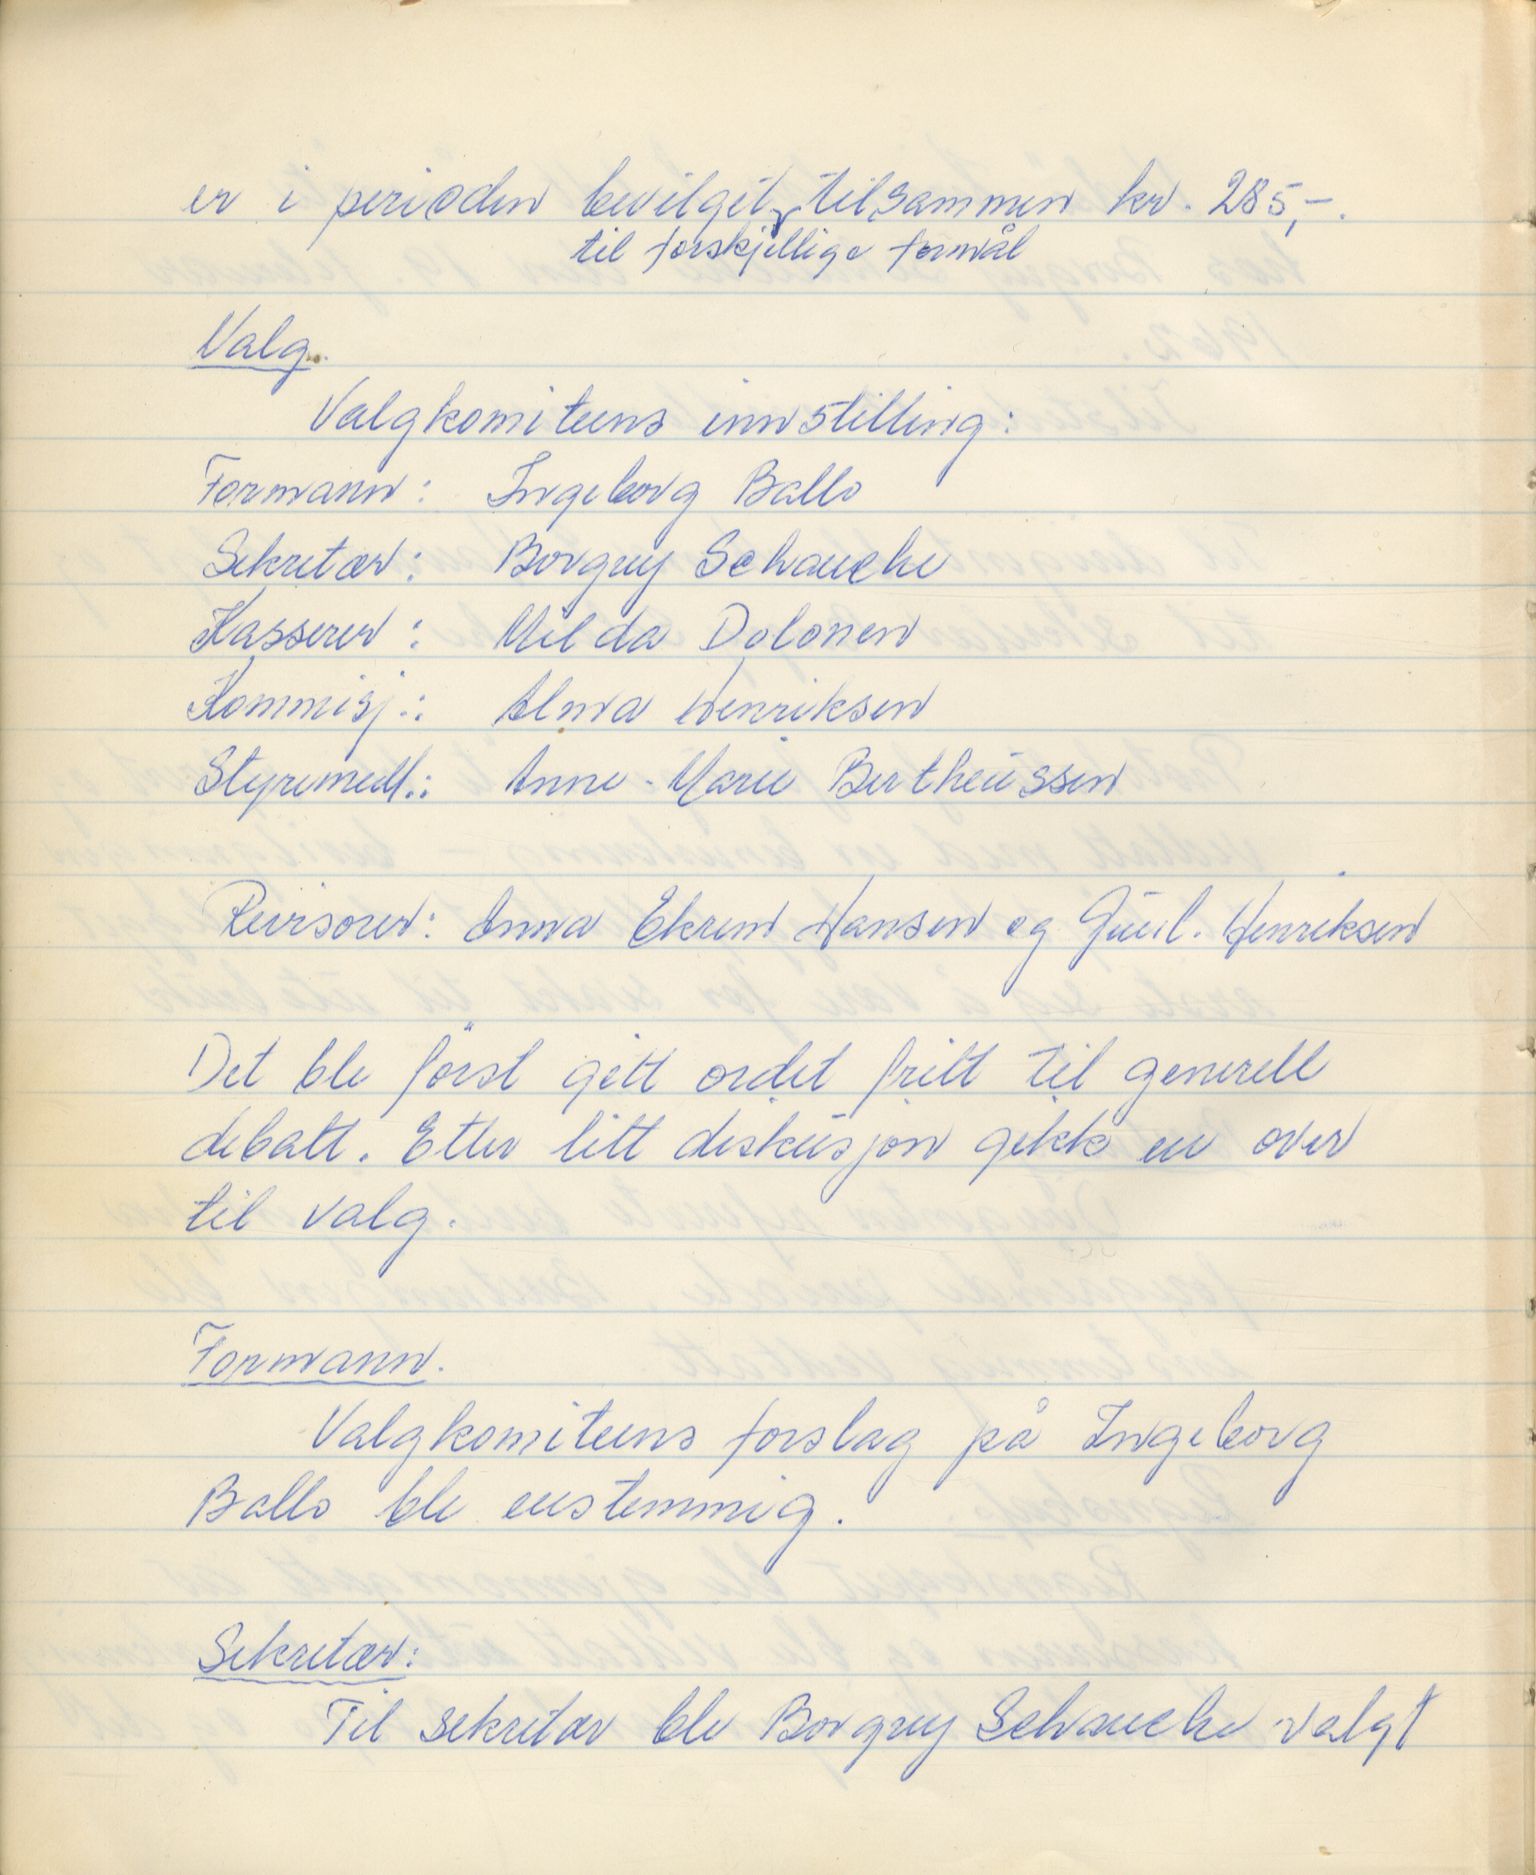 er i perioden bevilget tilsammen kr. 285,-.
til forskjellige formål
Valg.
Valgkomiteens innstilling:
Formann: Ingeborg Ballo
Sekretær: Borgny Schancke
Kasserer: Milda Dolonen
Kommisj.: Alma Henriksen
Styremedl.: Anne-Marie Bertheussen
Revisorer: Anna Ekrem Hansen og Henriksen
Det ble først gitt ordet fritt til generell
debatt. Etter litt diskusjon gikk en over
til valg.
Formann.
Valgkomiteens forslag på Ingeborg
Ballo ble enstemmig.
Sekretær:
Til sekretær ble Borgny Schancke valgt